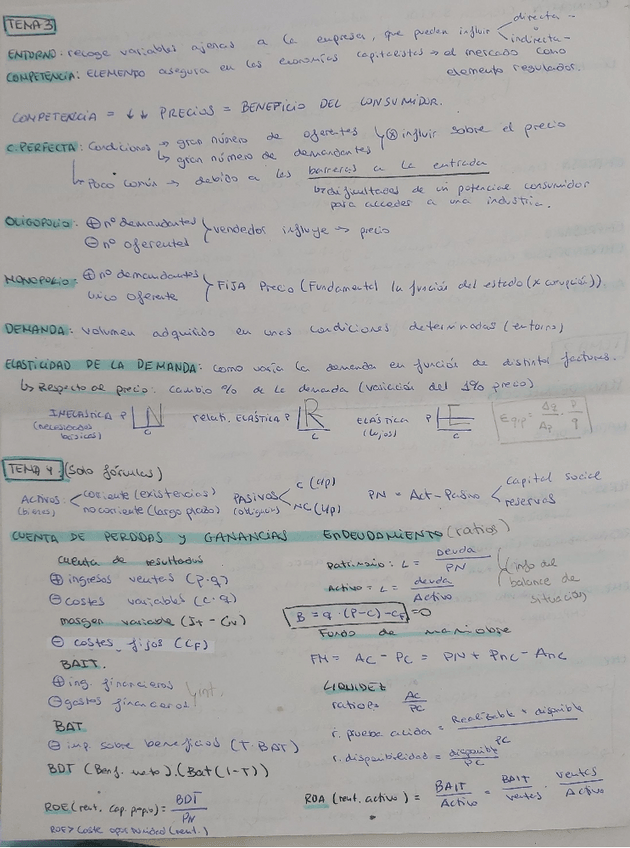 TEMA 3
directa -
ENTORNO: recoge variables ajenas a la empresa, que pueden influir
indirecta -
COMPETENCIA: ELEMENTO asegura en las economías capitalistas → el mercado como
elemento regulador.
COMPETENCIA = ↓↓ PRECIOS = BENEFICIO DEL CONSUMIDOR.
C. PERFECTA: Condiciones → gran número de oferentes
↳ gran número de demandantes
⊗ influir sobre el precio
↳ Poco común → debido a las barreras a la entrada
↳ dificultades de un potencial consumidor
para acceder a una industria.
OLIGOPOLIO: ⊕ nº demandantes
⊖ nº oferentes
vendedor influye → precio
MONOPOLIO: ⊕ nº demandantes
único oferente
FIJA Precio (Fundamental la función del estado (x corrupción))
DEMANDA: volumen adquirido en unas condiciones determinadas (entorno)
ELASTICIDAD DE LA DEMANDA: como varía la demanda en función de distintos factores.
↳ Respecto al precio: cambio % de la demanda (variación del 1% precio)
INELÁSTICA P
(necesidades básicas)
C
relati. ELÁSTICA P
R
C
ELÁSTICA P
(lujos)
E
C
Eq,p = Δq/Δp · p/q
TEMA 4: (Solo fórmulas)
ACTIVOS: corriente (existencias)
(bienes) no corriente (largo plazo)
PASIVOS C (c/p)
NC (l/p)
PN = Act - Pasivo capital social
reservas
CUENTA DE PERDIDAS Y GANANCIAS
cuenta de resultados
⊕ ingresos ventas (p·q)
⊖ costes variables (c·q)
margen variable (It - Cv)
⊖ costes fijos (CF)
BAIT.
⊕ ing. financieros
⊖ gastos financieros
int.
BAT
⊖ imp. sobre beneficios (T·BAT)
BDT (Benf. neto).(Bat(1-T))
ROE (rent. cap. propio) = BDT/PN
ROE > Coste oportunidad (rent.)
ENDEUDAMIENTO (ratios)
Patrimonio: L = Deuda/PN
Activo = L = deuda/Activo
info del
balance de
situación
B = q·(P-C) - CF = 0
Fondo de maniobra
FM = AC - PC = PN + PNC - ANC
LIQUIDEZ
ratio = AC/PC
r. prueba acida = Realizable + disponible/PC
r. disponibilidad = disponible/PC
ROA (rent. activo) = BAIT/Activo = BAIT/ventas · ventas/Activo